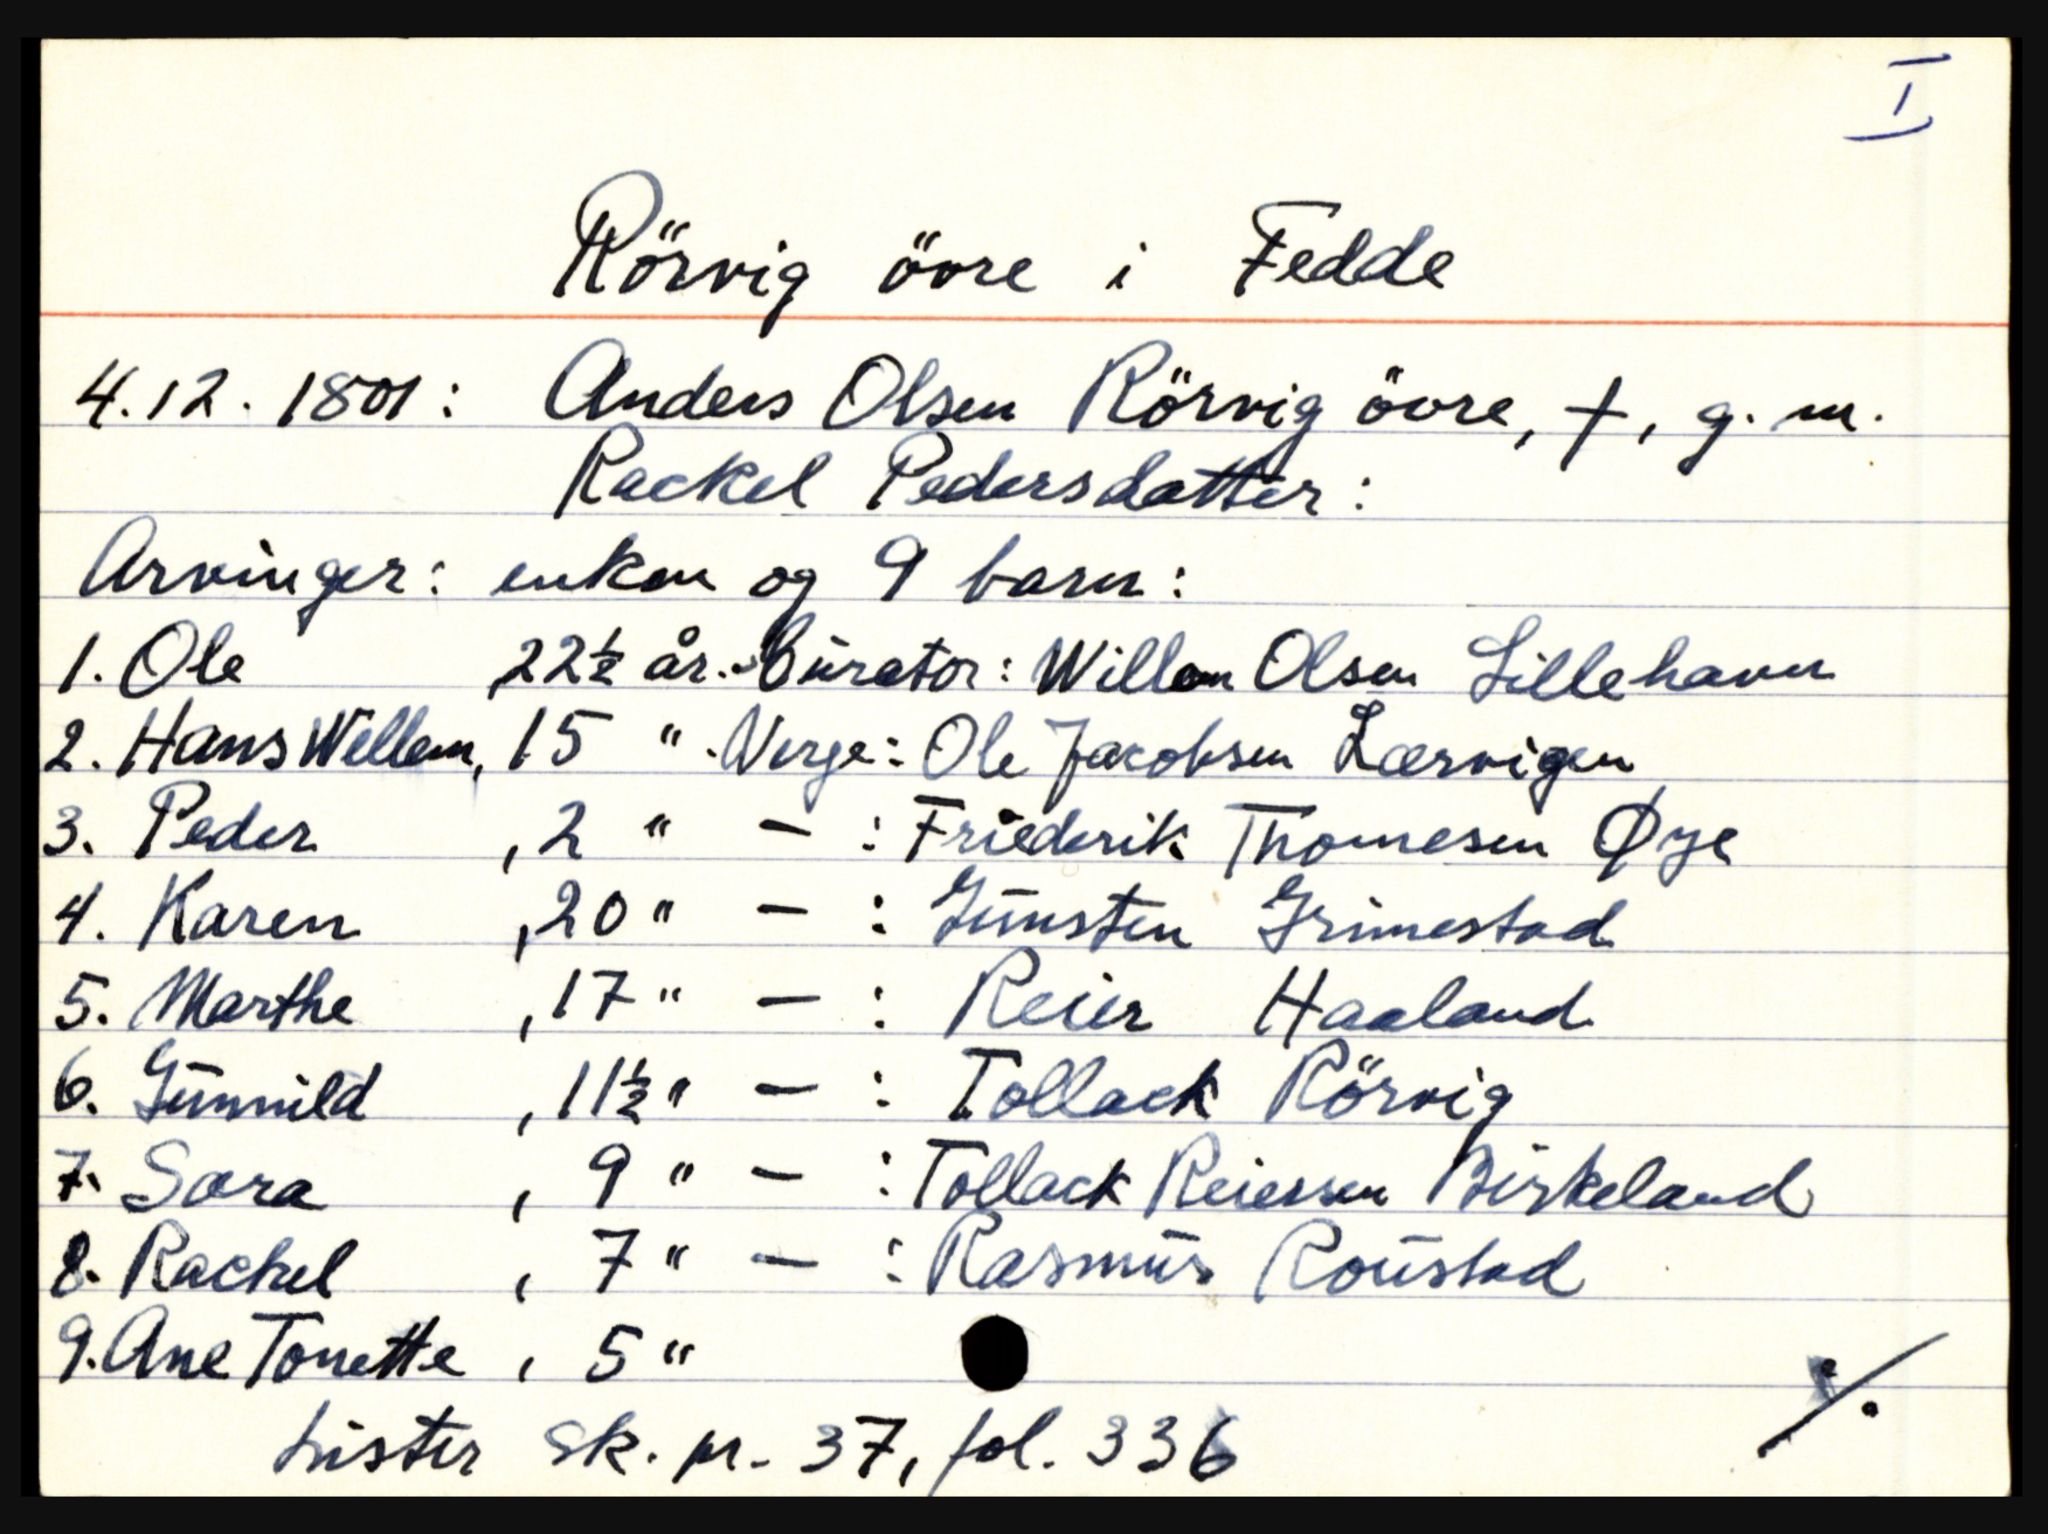 I
Rörvig övre i Fedde
4.12.1801: Anders Olsen Rörvig övre, †, g. m.
Rackel Pedersdatter:
Arvinger: enken og 9 barn:
1. Ole ,22½ år. Curator: Willem Olsen Lillehavn
2. Hans Willem, 15 " . Verge: Ole Jacobsen Lærvigen
3. Peder , 2 " — : Friederik Thomesen Øye
4. Karen , 20 " — : Gunsten Grimestad
5. Marthe , 17 " — : Reier Haaland
6. Gunnild , 11½ " — : Tollack Rörvig
7. Sara , 9 " — : Tollack Reiersen Birkeland
8. Rachel , 7 " — : Rasmus Roustad
9. Ane Tonette , 5 "
Lister sk. pr. 37, fol. 336
·/.